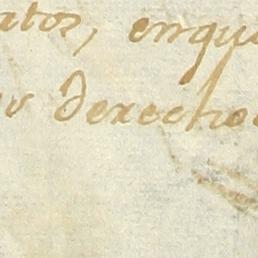 atos, enqu
derecho